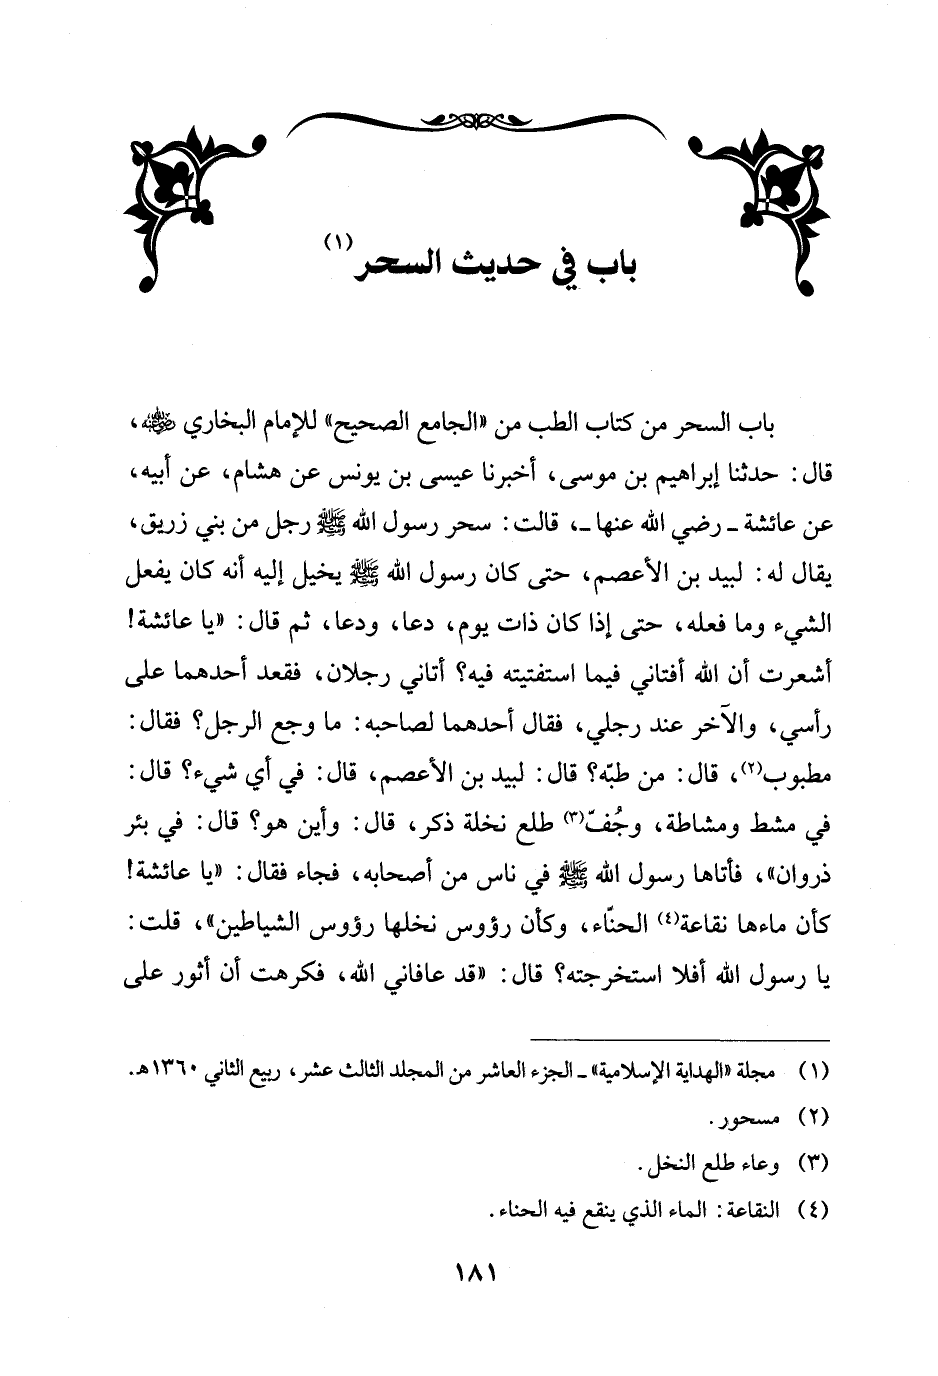 باب في حديث السحر (١)
باب السحر من كتاب الطب من «الجامع الصحيح» للإمام البخاري رضي الله عنه،
قال: حدثنا إبراهيم بن موسى، أخبرنا عيسى بن يونس عن هشام، عن أبيه،
عن عائشة ـ رضي الله عنها ـ، قالت: سحر رسول الله ﷺ رجل من بني زريق،
يقال له: لبيد بن الأعصم، حتى كان رسول الله ﷺ يخيل إليه أنه كان يفعل
الشيء وما فعله، حتى إذا كان ذات يوم، دعا، ودعا، ثم قال: «يا عائشة!
أشعرت أن الله أفتاني فيما استفتيته فيه؟ أتاني رجلان، فقعد أحدهما على
رأسي، والآخر عند رجلي، فقال أحدهما لصاحبه: ما وجع الرجل؟ فقال:
مطبوب(٢)، قال: من طبّه؟ قال: لبيد بن الأعصم، قال: في أي شيء؟ قال:
في مشط ومشاطة، وجُفّ(٣) طلع نخلة ذكر، قال: وأين هو؟ قال: في بئر
ذروان»، فأتاها رسول الله ﷺ في ناس من أصحابه، فجاء فقال: «يا عائشة!
كأن ماءها نقاعة(٤) الحنّاء، وكأن رؤوس نخلها رؤوس الشياطين»، قلت:
يا رسول الله أفلا استخرجته؟ قال: «قد عافاني الله، فكرهت أن أثور على
(١) مجلة «الهداية الإسلامية» ـ الجزء العاشر من المجلد الثالث عشر، ربيع الثاني ١٣٦٠هـ.
(٢) مسحور.
(٣) وعاء طلع النخل.
(٤) النقاعة: الماء الذي ينقع فيه الحناء.
١٨١